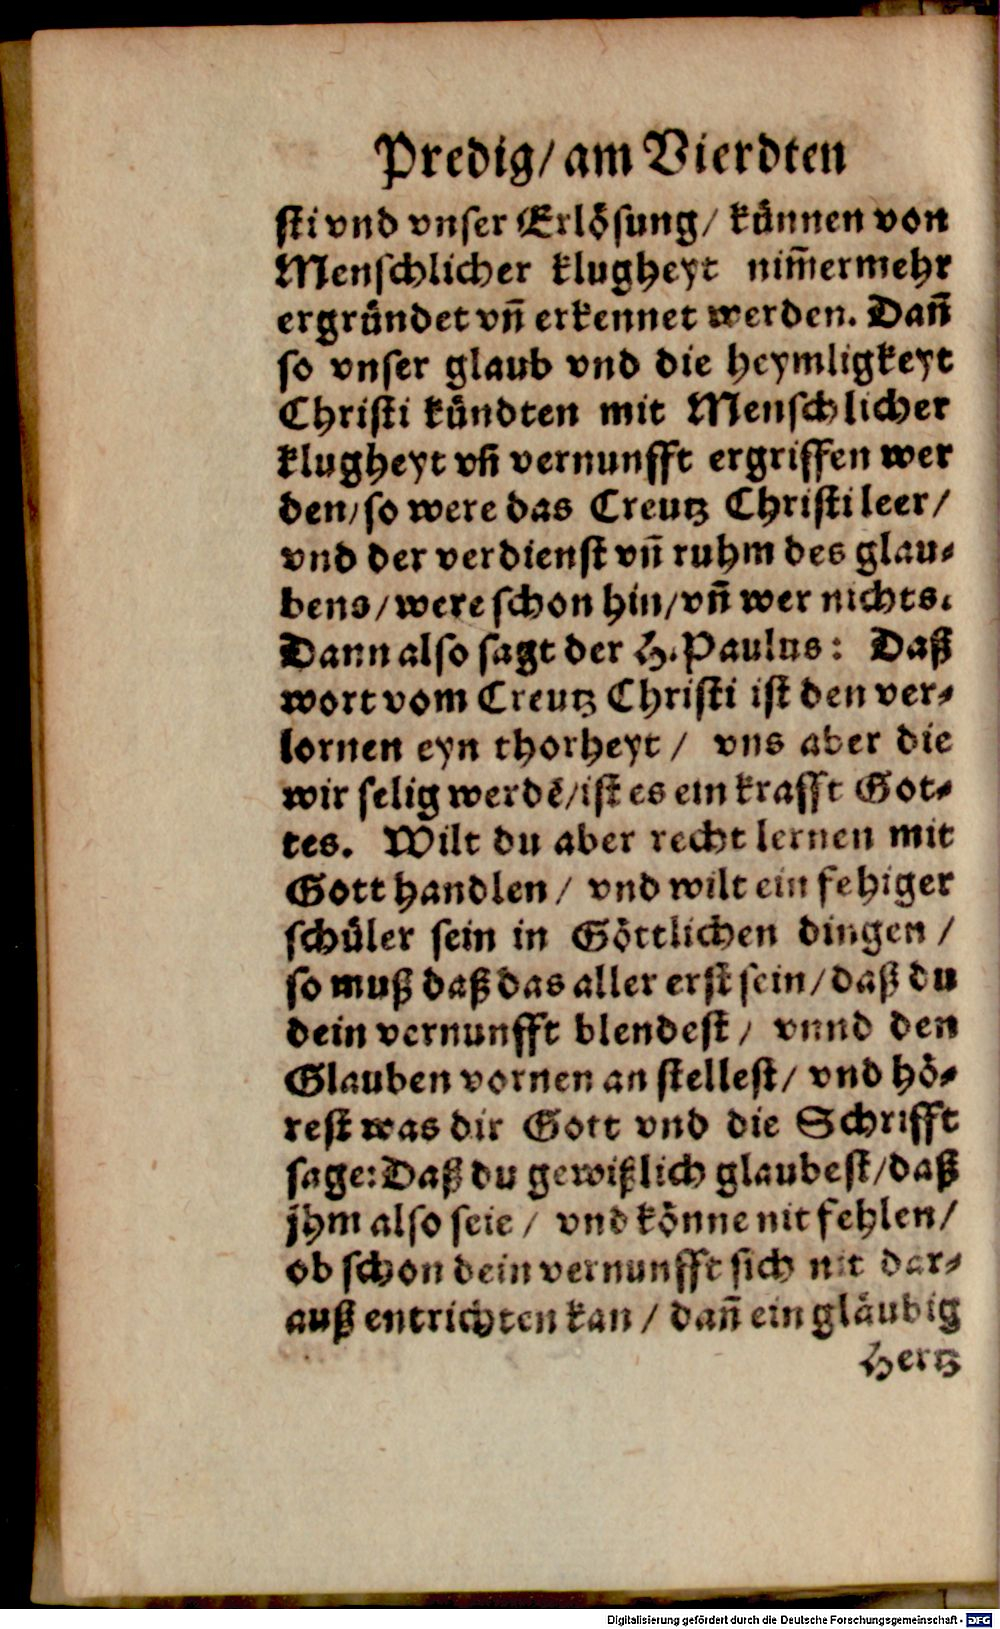 Predig/ am Vierdten
sti vnd vnser Erlösung/ künnen von
Menschlicher klugheyt nim̃ermehr
ergründet vñ erkennet werden. Dañ
so vnser glaub vnd die heymligkeyt
Christi kündten mit Menschlicher
klugheyt vñ vernunfft ergriffen wer
den/ so were das Creutz Christi leer/
vnd der verdienst vñ ruhm des glau-
bens/ were schon hin/ vñ wer nichts.
Dann also sagt der H. Paulus: Daß
wort vom Creutz Christi ist den ver-
lornen eyn thorheyt/ vns aber die
wir selig werdẽ/ ist es ein krafft Got-
tes. Wilt du aber recht lernen mit
Gott handlen/ vnd wilt ein fehiger
schüler sein in Göttlichen dingen/
so muß daß das aller erst sein/ daß du
dein vernunfft blendest/ vnnd den
Glauben vornen an stellest/ vnd hö-
rest was dir Gott vnd die Schrifft
sage: Daß du gewißlich glaubest/ daß
jhm also seie/ vnd könne nit fehlen/
ob schon dein vernunfft sich nit dar-
auß entrichten kan/ dañ ein gläubig
Hertz
Digitalisierung gefördert durch die Deutsche Forschungsgemeinschaft - DFG